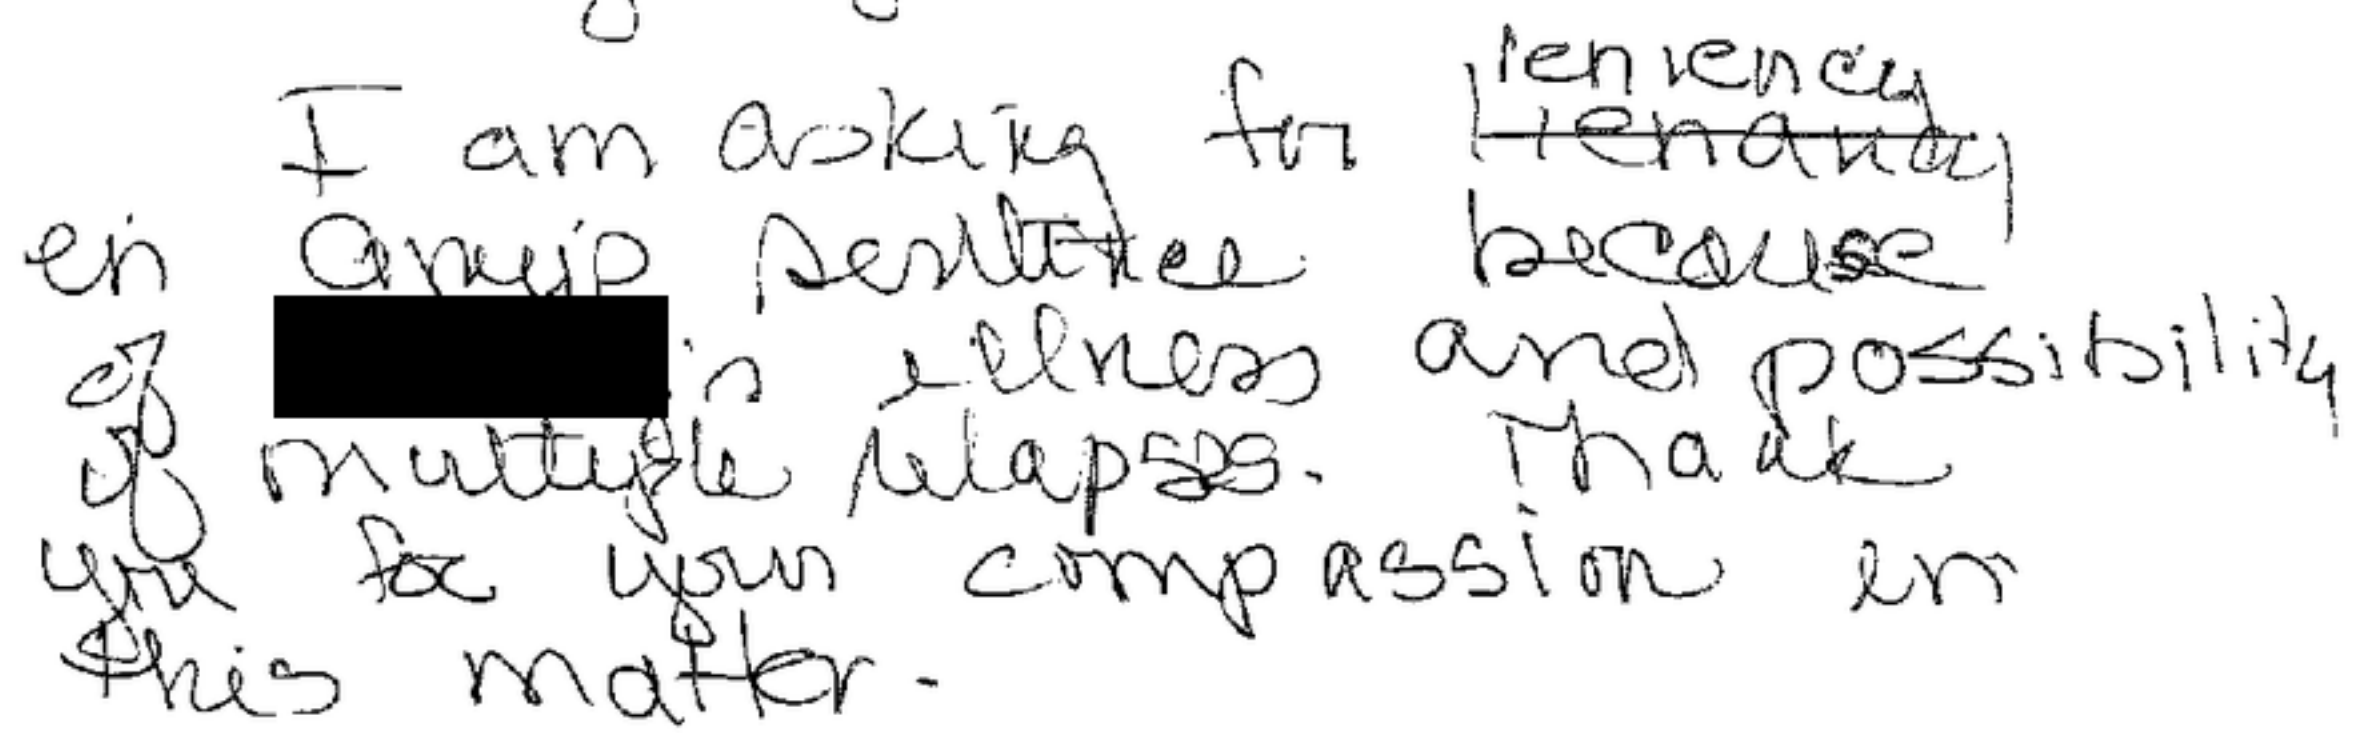 leniency
I am asking for lienancy
in sentence because
of 's illness and possibility
of multiple relapses. Thank
you for your compassion in
this matter.